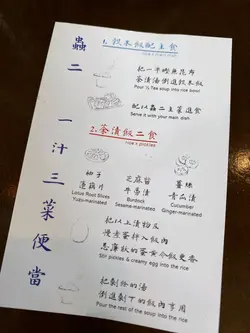 蟲二 一汁三菜便當
1. 穀米飯配主食
把一半鰹魚昆布
茶漬湯倒進穀米飯
Pour ½ Tea soup into the rice bowl
配以蟲二主菜進食
Serve it with your main dish
2. 茶漬飯二食
rice & pickles
柚子
蓮藕片
Lotus Root Slices
Yuzu-marinated
芝麻
牛蒡漬
Burdock
Sesame-marinated
薑味
青瓜漬
Cucumber
Ginger-marinated
把以上漬物及
慢煮蛋拌入飯內
忌廉狀的蛋黃令飯更香
Stir pickles & creamy egg into the rice
把剩餘的湯
倒進剩下的飯內享用
Pour the rest of the soup into the rice